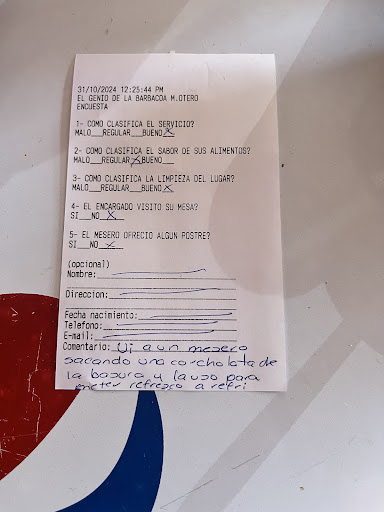 31/10/2024 12:25:44 PM
EL GENIO DE LA BARBACOA M.OTERO
ENCUESTA
1- COMO CLASIFICA EL SERVICIO?
MALO__REGULAR__BUENO X
2- COMO CLASIFICA EL SABOR DE SUS ALIMENTOS?
MALO__REGULAR X BUENO__
3- COMO CLASIFICA LA LIMPIEZA DEL LUGAR?
MALO__REGULAR__BUENO X
4- EL ENCARGADO VISITO SU MESA?
SI__NO X
5- EL MESERO OFRECIO ALGUN POSTRE?
SI__NO X
(opcional)
Nombre:
Direccion:
Fecha nacimiento:
Telefono:
E-mail:
Comentario: Vi a un mesero
sacando una corcholata de
la basura y lavso para
meter refresco a refri